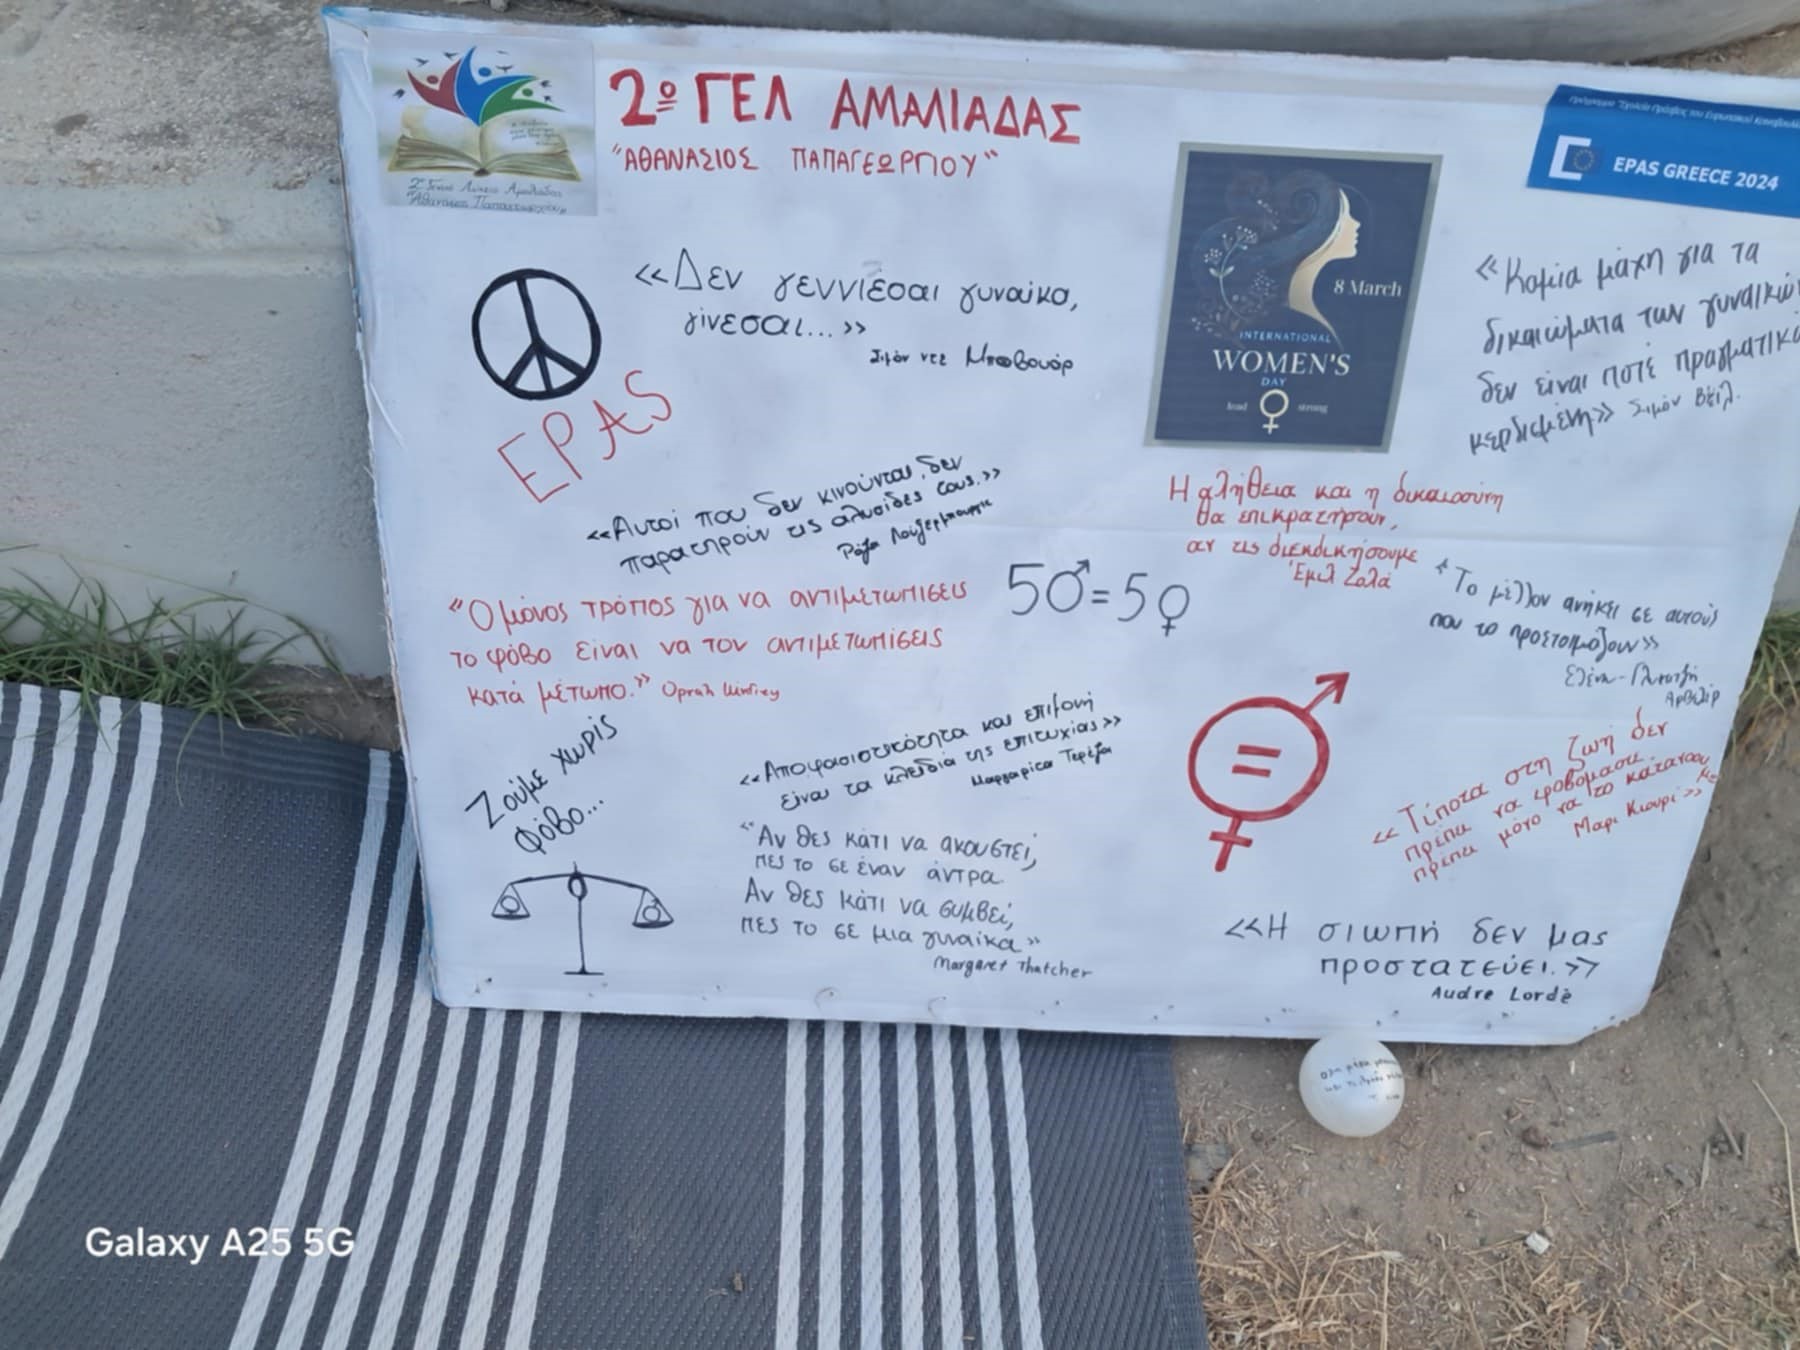 2ο ΓΕΛ ΑΜΑΛΙΑΔΑΣ
"ΑΘΑΝΑΣΙΟΣ ΠΑΠΑΓΕΩΡΓΙΟΥ"
2ο Γενικό Λύκειο Αμαλιάδας
"Αθανάσιος Παπαγεωργίου"
EPAS GREECE 2024
«Δεν γεννιέσαι γυναίκα,
γίνεσαι...»
Σιμόν ντε Μποβουάρ
EPAS
8 March
INTERNATIONAL
WOMEN'S
DAY
lead strong
«Καμία μάχη για τα
δικαιώματα των γυναικών
δεν είναι ποτέ πραγματικά
κερδισμένη» Σιμόν Βέιλ.
«Αυτοί που δεν κινούνται, δεν
παρατηρούν τις αλυσίδες τους.»
Ρόζα Λούξεμπουργκ
Η αλήθεια και η δικαιοσύνη
θα επικρατήσουν,
αν τις διεκδικήσουμε
Έμιλ Ζολά
"Ο μόνος τρόπος για να αντιμετωπίσεις
το φόβο είναι να τον αντιμετωπίσεις
κατά μέτωπο." Oprah Winfrey
5♂=5♀
«Το μέλλον ανήκει σε αυτούς
που το προετοιμάζουν»
Ελένη-Γλυκατζή
Αρβελέρ
Ζούμε χωρίς
φόβο...
«Αποφασιστικότητα και επιμονή
είναι τα κλειδιά της επιτυχίας»
Μαργαρίτα Τερέζα
=
«Τίποτα στη ζωή δεν
πρέπει να φοβόμαστε.
πρέπει μόνο να το κατανοού
με
Μαρι Κιουρί»
"Αν θες κάτι να ακουστεί,
πες το σε έναν άντρα.
Αν θες κάτι να συμβεί,
πες το σε μια γυναίκα"
Margaret Thatcher
«Η σιωπή δεν μας
προστατεύει.»
Audre Lorde
Galaxy A25 5G